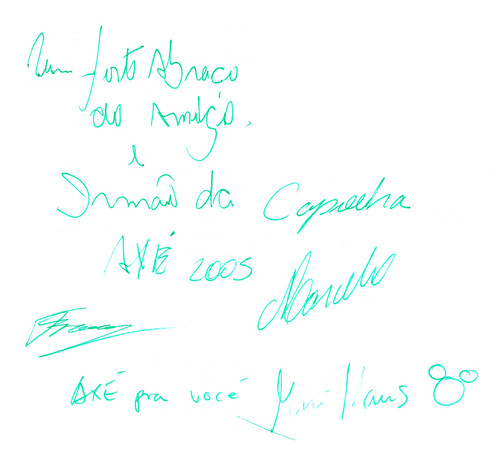 Um forte Abraço
do Amigo.
e
Irmão da Capoeira
AXÉ 2005
Marcelo
AXÉ pra você Mini Maus